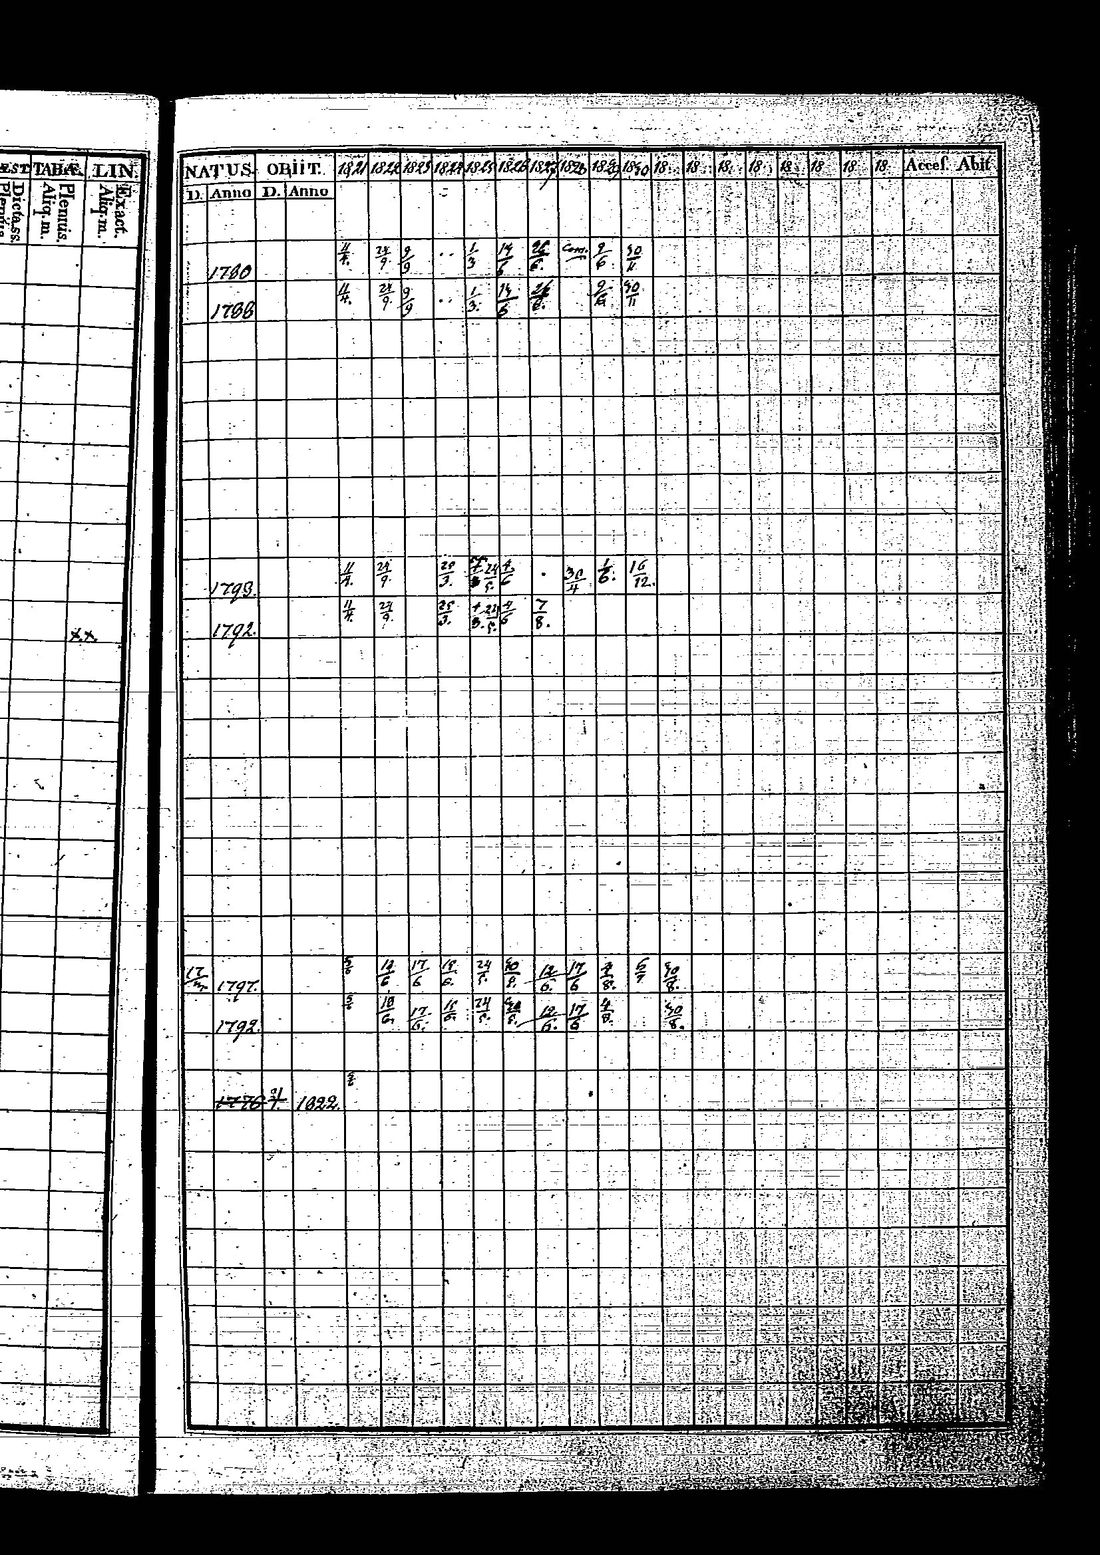 ÆST TABÆ. LIN.
Plenius Dictass. Aliq.m. Plenius. Aliq.m. Exact.
NATUS. OBIIT. 1821 1822 1823 1824 1825 1826 1827 1828 1829 1830 18 18 18 18 18 18 18 18 Accef. Abiit
D. Anno D. Anno
1780 11/4. 24/9. 9/9 .. 1/3 14/6 26/6. Com. 9/6. 30/11
1788 11/4. 24/9. 9/9 .. 1/3. 14/6 26/6. 9/6. 30/11
1793. 11/4. 24/9. 20/3. 24/5. 4/6 . 30/4 1/6. 16/12.
1792. 11/4. 24/9. 25/3. 4/6 7/8.
x.x.
17 1797. 5/6 12/6 17/6 18/6. 24/5. 30/8. 12/6. 17/6 4/8. 6/7 30/8.
1792. 5/6 10/6. 17/6. 18/6. 24/5. 12/6. 17/6 4/8. 30/8.
1776 1822.